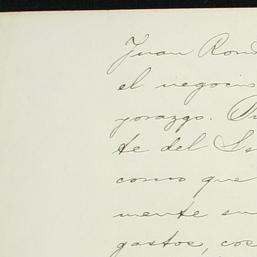 Juan Rom
el negocio
yorazgo. 
te del Se
como que
mente en
gastos, cos